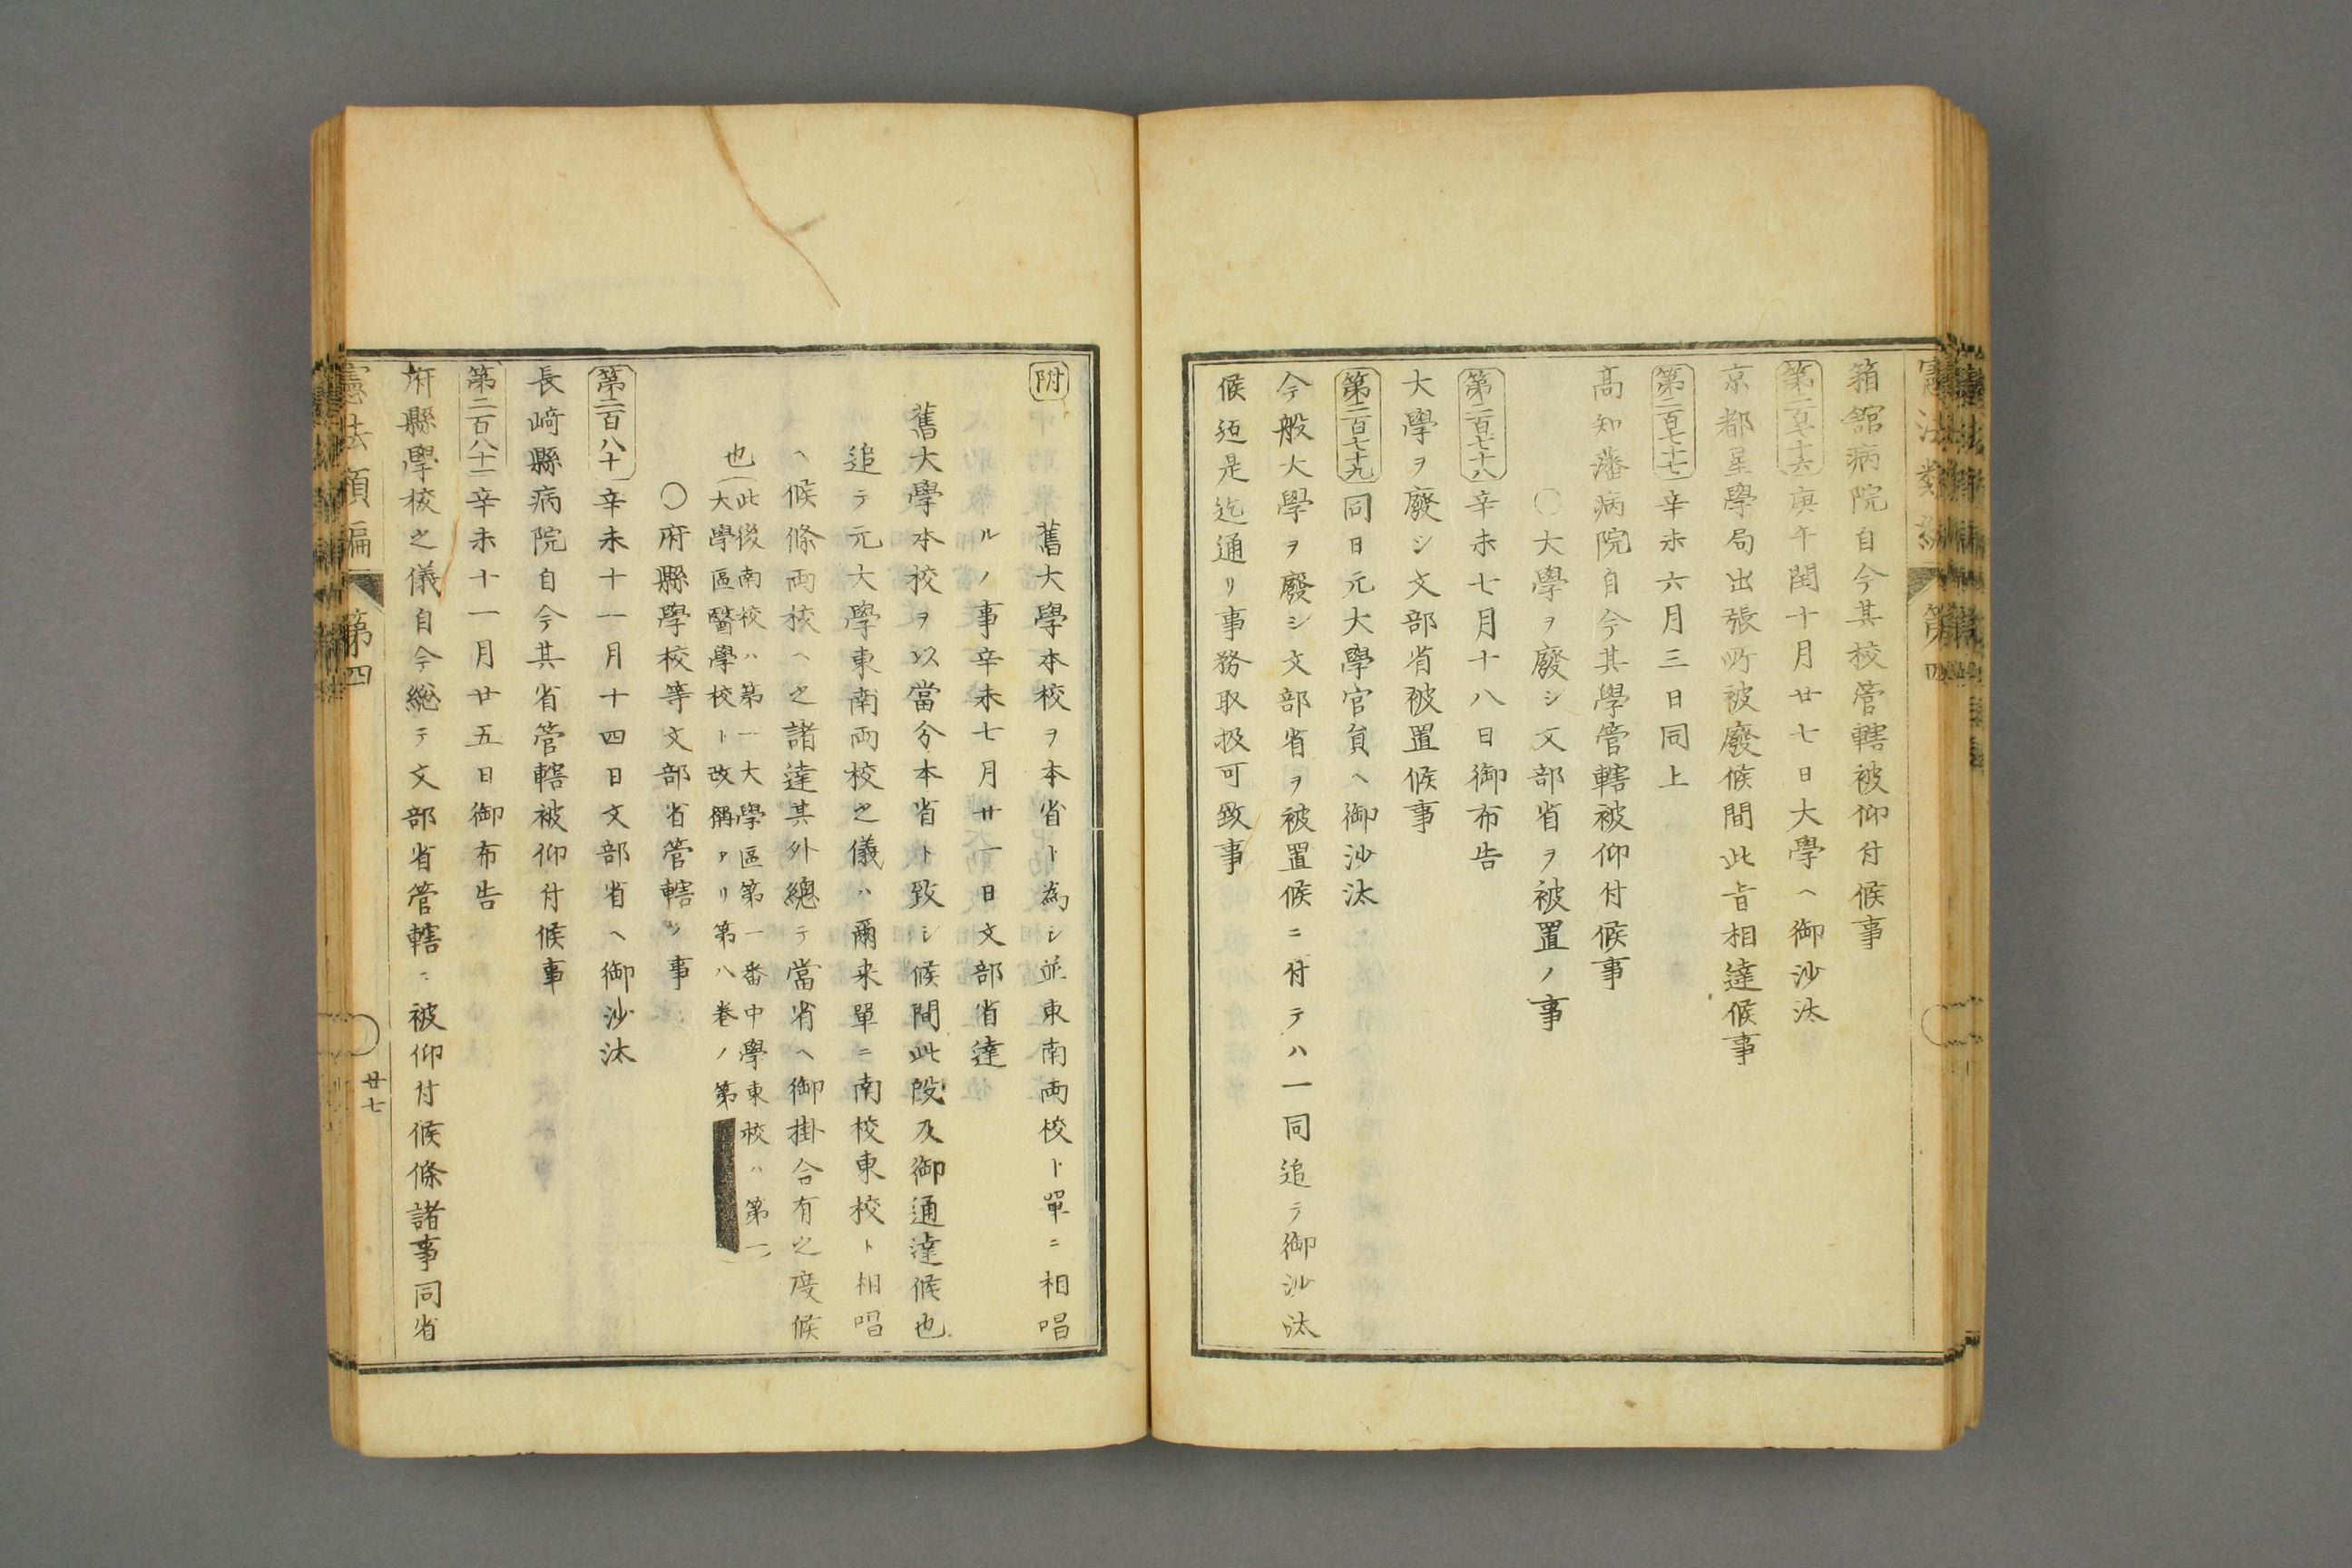 憲法類編 第四
箱舘病院自今其校管轄被仰付候事
第二百七十六 庚午閏十月廿七日大學ヘ御沙汰
京都星學局出張所被廢候間此旨相達候事
第二百七十七 辛未六月三日同上
髙知藩病院自今其學管轄被仰付候事
〇大學ヲ廢シ文部省ヲ被置ノ事
第二百七十八 辛未七月十八日御布告
大學ヲ廢シ文部省被置候事
第二百七十九 同日元大學官員ヘ御沙汰
今般大學ヲ廢シ文部省ヲ被置候ニ付テハ一同追テ御沙汰
候迠是迄通リ事務取扱可致事
附 舊大學本校ヲ本省ト為シ並東南両校ト單ニ相唱
ルノ事辛未七月廿一日文部省達
舊大學本校ヲ以當分本省ト致シ候間此段及御通達候也
追テ元大學東南両校之儀ハ爾来單ニ南校東校ト相唱
ヘ候條両校ヘ之諸達其外總テ當省ヘ御掛合有之度候
也(此後南校ハ第一大學區第一番中學東校ハ第一
大學區醫學校ト改稱アリ第八巻ノ第
〇府縣學校等文部省管轄ノ事
第二百八十 辛未十一月十四日文部省ヘ御沙汰
長﨑縣病院自今其省管轄被仰付候事
第二百八十一 辛未十一月廿五日御布告
府縣學校之儀自今總テ文部省管轄ニ被仰付候條諸事同省
憲法類編 第四 廿七